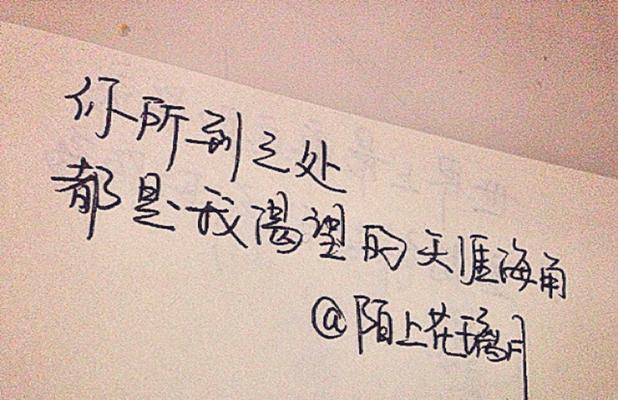 你所到之处
都是我渴望的天涯海角
@陌上花璃月